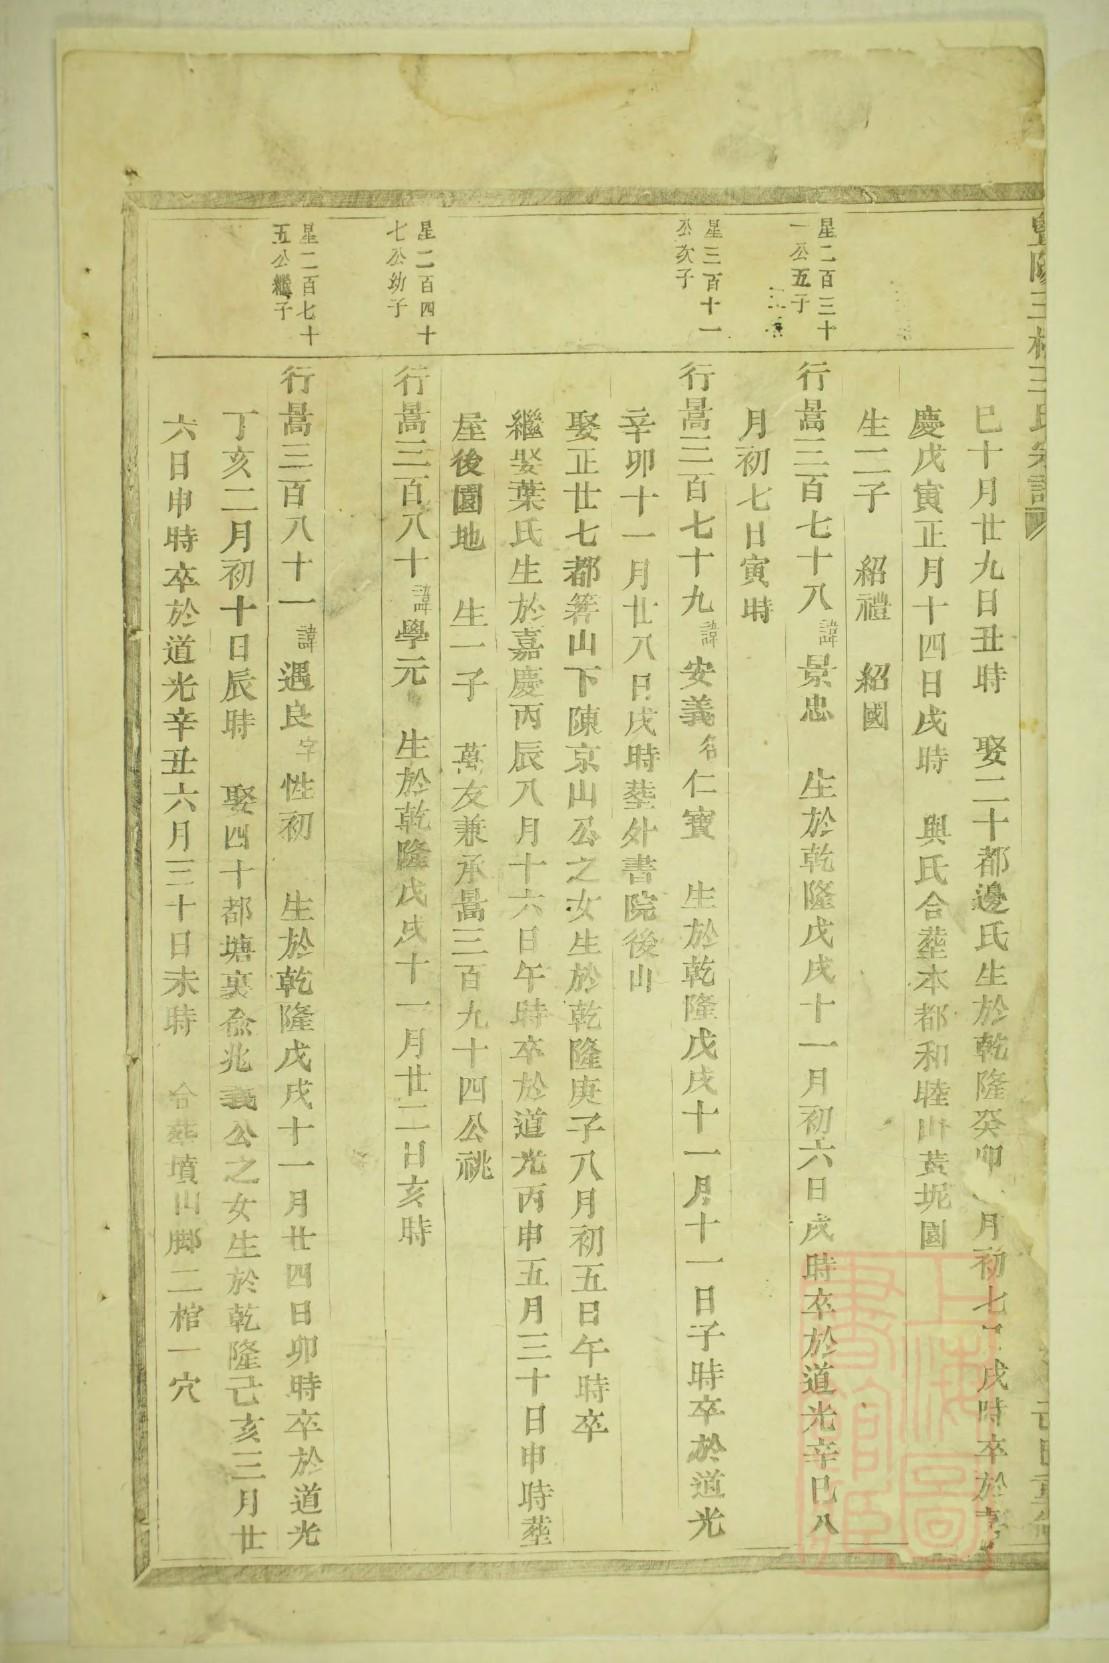 巳十月廿九日丑時　娶二十都邊氏生於乾隆癸卯　月初七　戌時卒於
慶戊寅正月十四日戌時　與氏合塟本都和睦山黃坭園
生二子　紹禮　紹國
星二百三十
一公五子
行暠三百七十八諱景忠　生於乾隆戊戌十一月初六日戌時卒於道光辛巳八
月初七日寅時
星三百十一
公次子
行暠三百七十九諱安義名仁寶　生於乾隆戊戌十一月十一日子時卒於道光
辛卯十一月廿八日戌時塟外書院後山
娶正廿七都箬山下陳京山公之女生於乾隆庚子八月初五日午時卒
繼娶葉氏生於嘉慶丙辰八月十六日午時卒於道光丙申五月三十日申時塟
屋後園地　生一子　萬友兼承暠三百九十四公祧
星二百四十
七公幼子
行暠三百八十諱學元　生於乾隆戊戌十一月廿二日亥時
星二百七十
五公繼子
行暠三百八十一諱遇良字性初　生於乾隆戊戌十一月廿四日卯時卒於道光
丁亥二月初十日辰時　娶四十都塘裏俞兆義公之女生於乾隆己亥三月廿
六日申時卒於道光辛丑六月三十日未時　合塟墳山脚二棺一穴